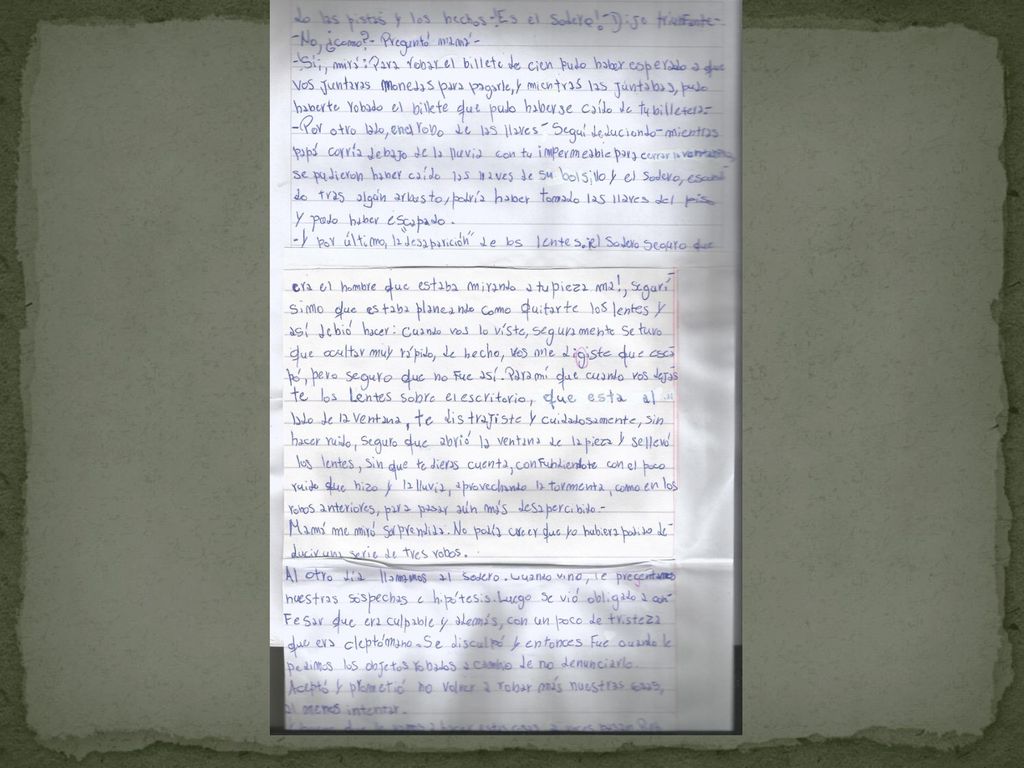 do las pistas y los hechos-¡Es el sodero!-Dije triunfante-
-No, ¿como?- Preguntó mamá-
-Sii, mirá: Para robar el billete de cien pudo haber esperado a que
vos juntaras monedas para pagarle, y mientras las juntabas, pudo
haberte robado el billete que pudo haberse caído de tu billetera-
-Por otro lado, en el robo de las llaves- Seguí deduciendo-mientras
papá corría debajo de la lluvia con tu impermeable para cerrar la ventana,
se pudieron haber caído las llaves de su bolsillo y el sodero, escondi
do tras algún arbusto, podría haber tomado las llaves del piso
y pudo haber escapado.
-Y por último, la "desaparición" de los lentes. El sodero seguro que
era el hombre que estaba mirando a tu pieza ma!, segurí-
simo que estaba planeando como quitarte los lentes y
así debió hacer: Cuando vos lo viste, seguramente se tuvo
que ocultar muy rápido, de hecho, vos me digiste que esca-
pó, pero seguro que no fue así. Para mí que cuando vos dejas
te los lentes sobre el escritorio, que esta al
lado de la ventana, te distrajiste y cuidadosamente, sin
hacer ruido, seguro que abrió la ventana de la pieza y se llevó
los lentes, sin que te dieras cuenta, confundiendote con el poco
ruido que hizo y la lluvia, aprovechando la tormenta, como en los
robos anteriores, para pasar aún más desapercibido-
Mamá me miró sorprendida. No podía creer que yo hubiera podido de-
ducir una serie de tres robos.
Al otro día llamamos al sodero. Cuando vino, le presentamos
nuestras sospechas e hipótesis. Luego se vió obligado a con-
fesar que era culpable y además, con un poco de tristeza
que era cleptómano. Se disculpó y entonces fue cuando le
pedimos los objetos robados a cambio de no denunciarlo.
Aceptó y prometió no volver a robar más nuestras cosas,
al menos intentar.